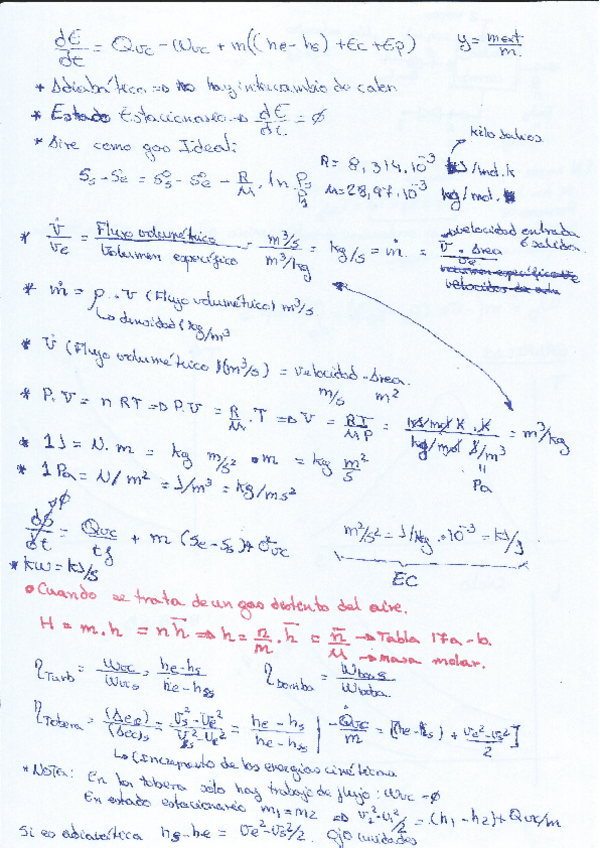 dE/dt = Qvc - Wvc + m((he-hs) + Ec + Ep)    y = mext/m.
* Adiabática => no hay intercambio de calor
* Estado Estacionario => dE/dt = ∅
* Aire como gas Ideal:
kilo Julios
R = 8,314·10⁻³ kJ/mol·k
Ss - Se = S°s - S°e - R/M · ln Ps/Pe    M = 28,97·10⁻³ kg/mol·
* V̇/ve = Flujo volumétrico / Volumen específico = m³/s / m³/kg = kg/s = ṁ = V·Área/ve
velocidad entrada ó salida.
* ṁ = ρ · v (Flujo volumétrico) m³/s
↳ densidad (kg/m³
* V̇ (Flujo volumétrico)(m³/s) = velocidad · Area.
m/s    m²
* P·V = n RT => P·V = R/M · T => V = RT/MP = kJ/mol K · K / kg/mol J/m³ = m³/kg
* 1J = N·m = kg m/s² · m = kg m²/s
* 1Pa = N/m² = J/m³ = kg/ms²
Pa
dS/dt = Qvc/tf + m(Se-Ss) + σvc    m²/s² = J/kg · 10⁻³ = kJ/g
∅
* kW = kJ/s
EC
• Cuando se trata de un gas distinto del aire.
H = m·h = n h̄ => h = n/m · h̄ = h̄/M → Tabla 17a-b.
→ masa molar.
ηTurb = Wvc/Wvcs = he-hs/he-hss    ηBomba = Wbas/Wbba.
ηTobera = (Δec)/(Δec)s = Vs²-Ve²/Vss²-Ve² = he-hs/he-hss | -Q̇vc/m = [(he-hs) + ve²-vs²/2]
↳ (Incremento de las energías cinética
* Nota: En la tobera sólo hay trabajo de flujo: Wvc = ∅
En estado estacionario m1 = m2 => v2²-v1²/2 = (h1-h2) + Qvc/m
Si es adiabática hs-he = ve²-vs²/2. Ojo unidades